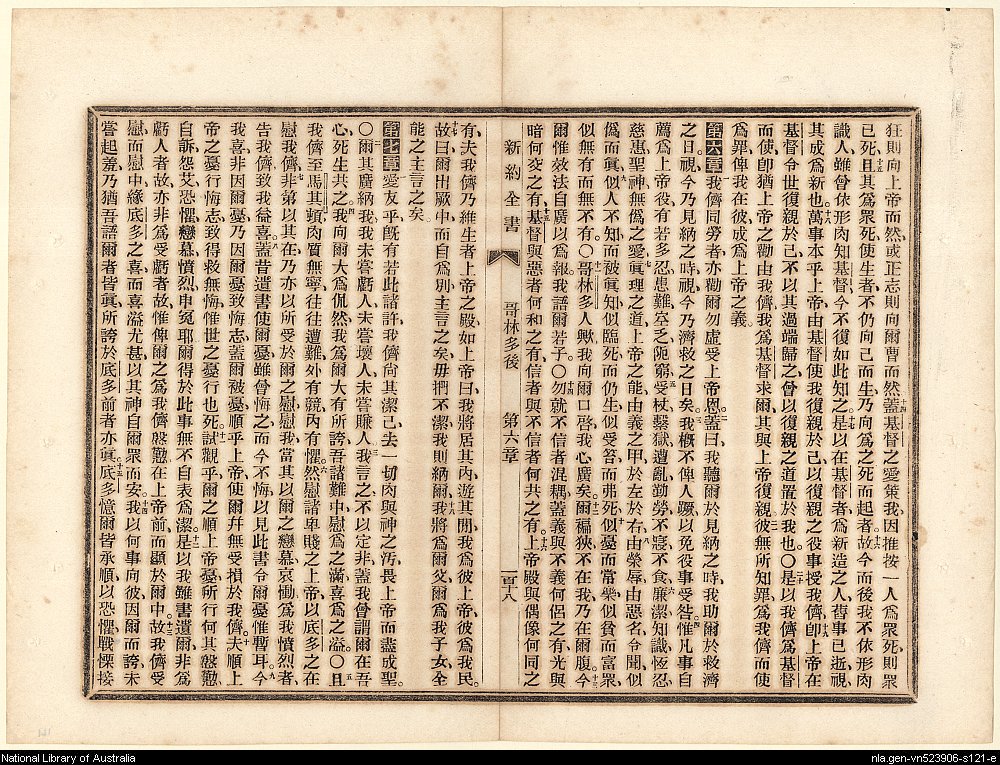 狂則向上帝而然、或正志則向爾曹而然、蓋基督之愛策我、因推按一人爲眾死、則眾
已死、且其爲眾死、使生者不仍向己而生、乃向爲之死而起者、故今而後我不依形肉
識人、雖曾依形肉知基督、今不復如此知之、是以在基督者、爲新造之人、舊事已逝、視
其成爲新也、萬事本乎上帝、由基督使我復親於己、以復親之役事授我儕、卽上帝在
基督令世復親於己、不以其過端歸之、曾以復親之道置於我也。○是以我儕爲基督
而使、卽猶上帝之勸由我儕、我爲基督求爾、其與上帝復親、彼無所知罪、爲我儕而使
爲罪、俾我在彼成爲上帝之義。
第六章 我儕同勞者、亦勸爾勿虛受上帝恩、蓋曰、我聽爾於見納之時、我助爾於救濟
之日、視今乃見納之時、視今乃濟救之日矣、我概不俾人躓、以免役事受咎、惟凡事自
薦爲上帝役、有若多忍、患難、空乏、阨窮、受杖、繫獄、遭亂、勤勞、不寢、不食、廉潔、知識、恆忍、
慈惠、聖神、無僞之愛、眞理之道、上帝之能、由義之甲於左於右、由榮辱、由惡名令聞、似
僞而眞、似人不知而被眞知、似臨死而仍生、似受笞而弗死、似憂而常樂、似貧而富眾、
似無有而無不有。○哥林多人歟、我向爾口啓我心廣矣、爾褊狹不在我、乃在爾腹、今
爾惟效法自廣以爲報、我語爾若子。○勿就不信者混耦、蓋義與不義何侶之有、光與
暗何交之有、基督與惡者何和之有、信者與不信者何共之有、上帝殿與偶像何同之
新約全書 哥林多後 第六章 一百十八
有、夫我儕乃維生者上帝之殿、如上帝曰、我將居其內、遊其間、我爲彼上帝、彼爲我民、
故曰、爾出厥中而自爲別、主言之矣、毋捫不潔、我則納爾、我將爲爾父、爾爲我子女、全
能之主言之矣。
第七章 愛友乎、旣有若此諸許、我儕尚其潔己、去一切肉與神之汚、畏上帝而盡成聖。
○爾其廣納我、我未嘗虧人、未嘗壞人、未嘗賺人、我言之、不以定非、蓋我曾謂爾在吾
心、死生共之、我向爾大爲侃然、我爲爾大有所誇、吾諸難中、慰爲之滿、喜爲之溢。○且
我儕至馬其頓、肉質無寧、往往遭難、外有競、內有懼、然慰諸卑賤之上帝、以底多之在
慰我儕、非第以其在、乃亦以所受於爾之慰慰我、當其以爾之戀慕、哀慟、爲我憤烈者、
告我儕、致我益喜、蓋昔遺書使爾憂、雖曾悔之、而今不悔、以見此書令爾憂惟暫耳、今
我喜非因爾憂、乃因爾憂致悔志、蓋爾被憂順乎上帝、使爾幷無受損於我儕、夫順上
帝之憂、行悔志、致得救無悔、惟世之憂行也死、試觀乎爾之順上帝憂、所行何其慇懃、
自訴、怨艾、恐懼、戀慕、憤烈、申冤耶、爾得於此事無不自表爲潔、是以我雖書遺爾、非爲
虧人者故、亦非爲受虧者故、惟俾爾之爲我儕慇懃在上帝前、而顯於爾中、故我儕受
慰、而慰中緣底多之喜、而喜溢尤甚、以其神自爾眾而安、我以何事向彼因爾而誇、未
嘗起羞、乃猶吾語爾者皆眞、所誇於底多前者亦眞、底多憶爾皆承順、以恐懼戰慄接
National Library of Australia
nla.gen-vn523906-s121-e